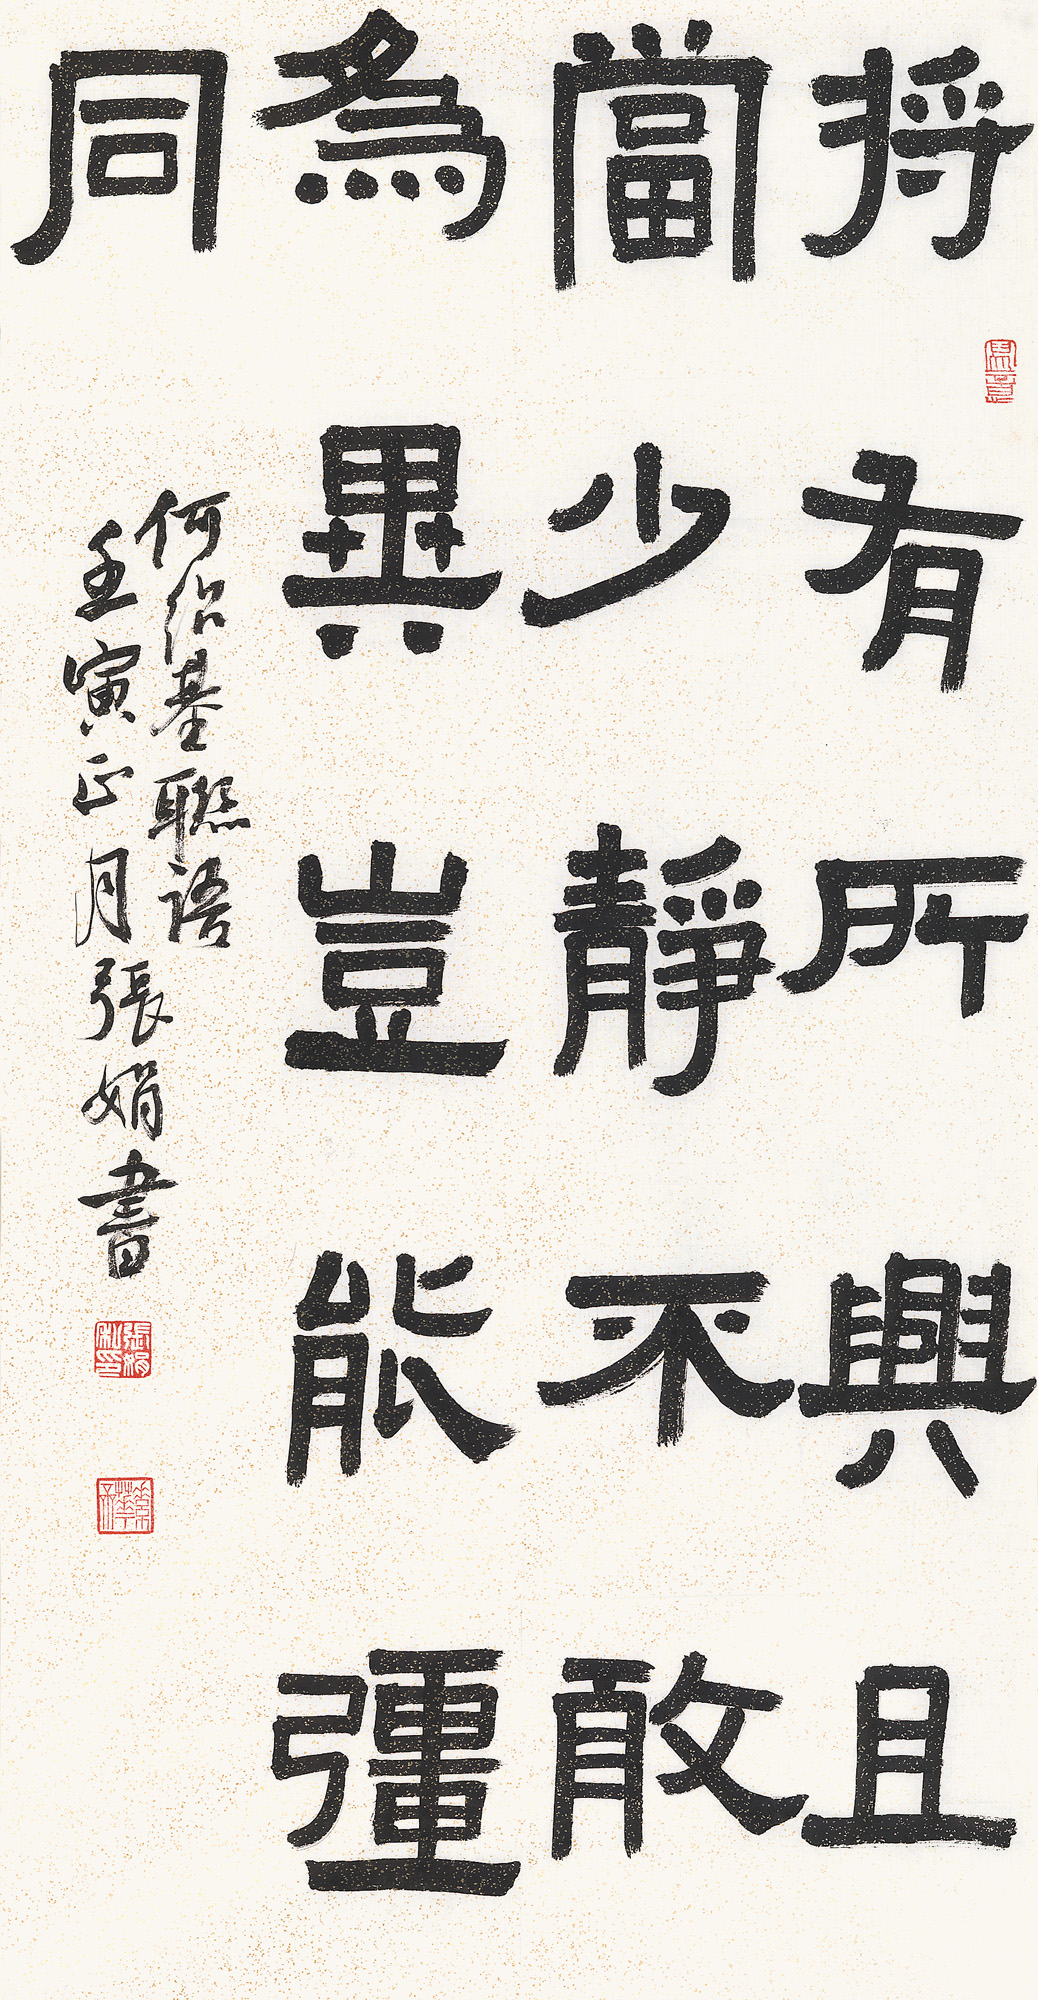 将有所興且
當少靜不敢
為異豈能彊
同
何紹基聯語
壬寅正月張娟書
張娟私印